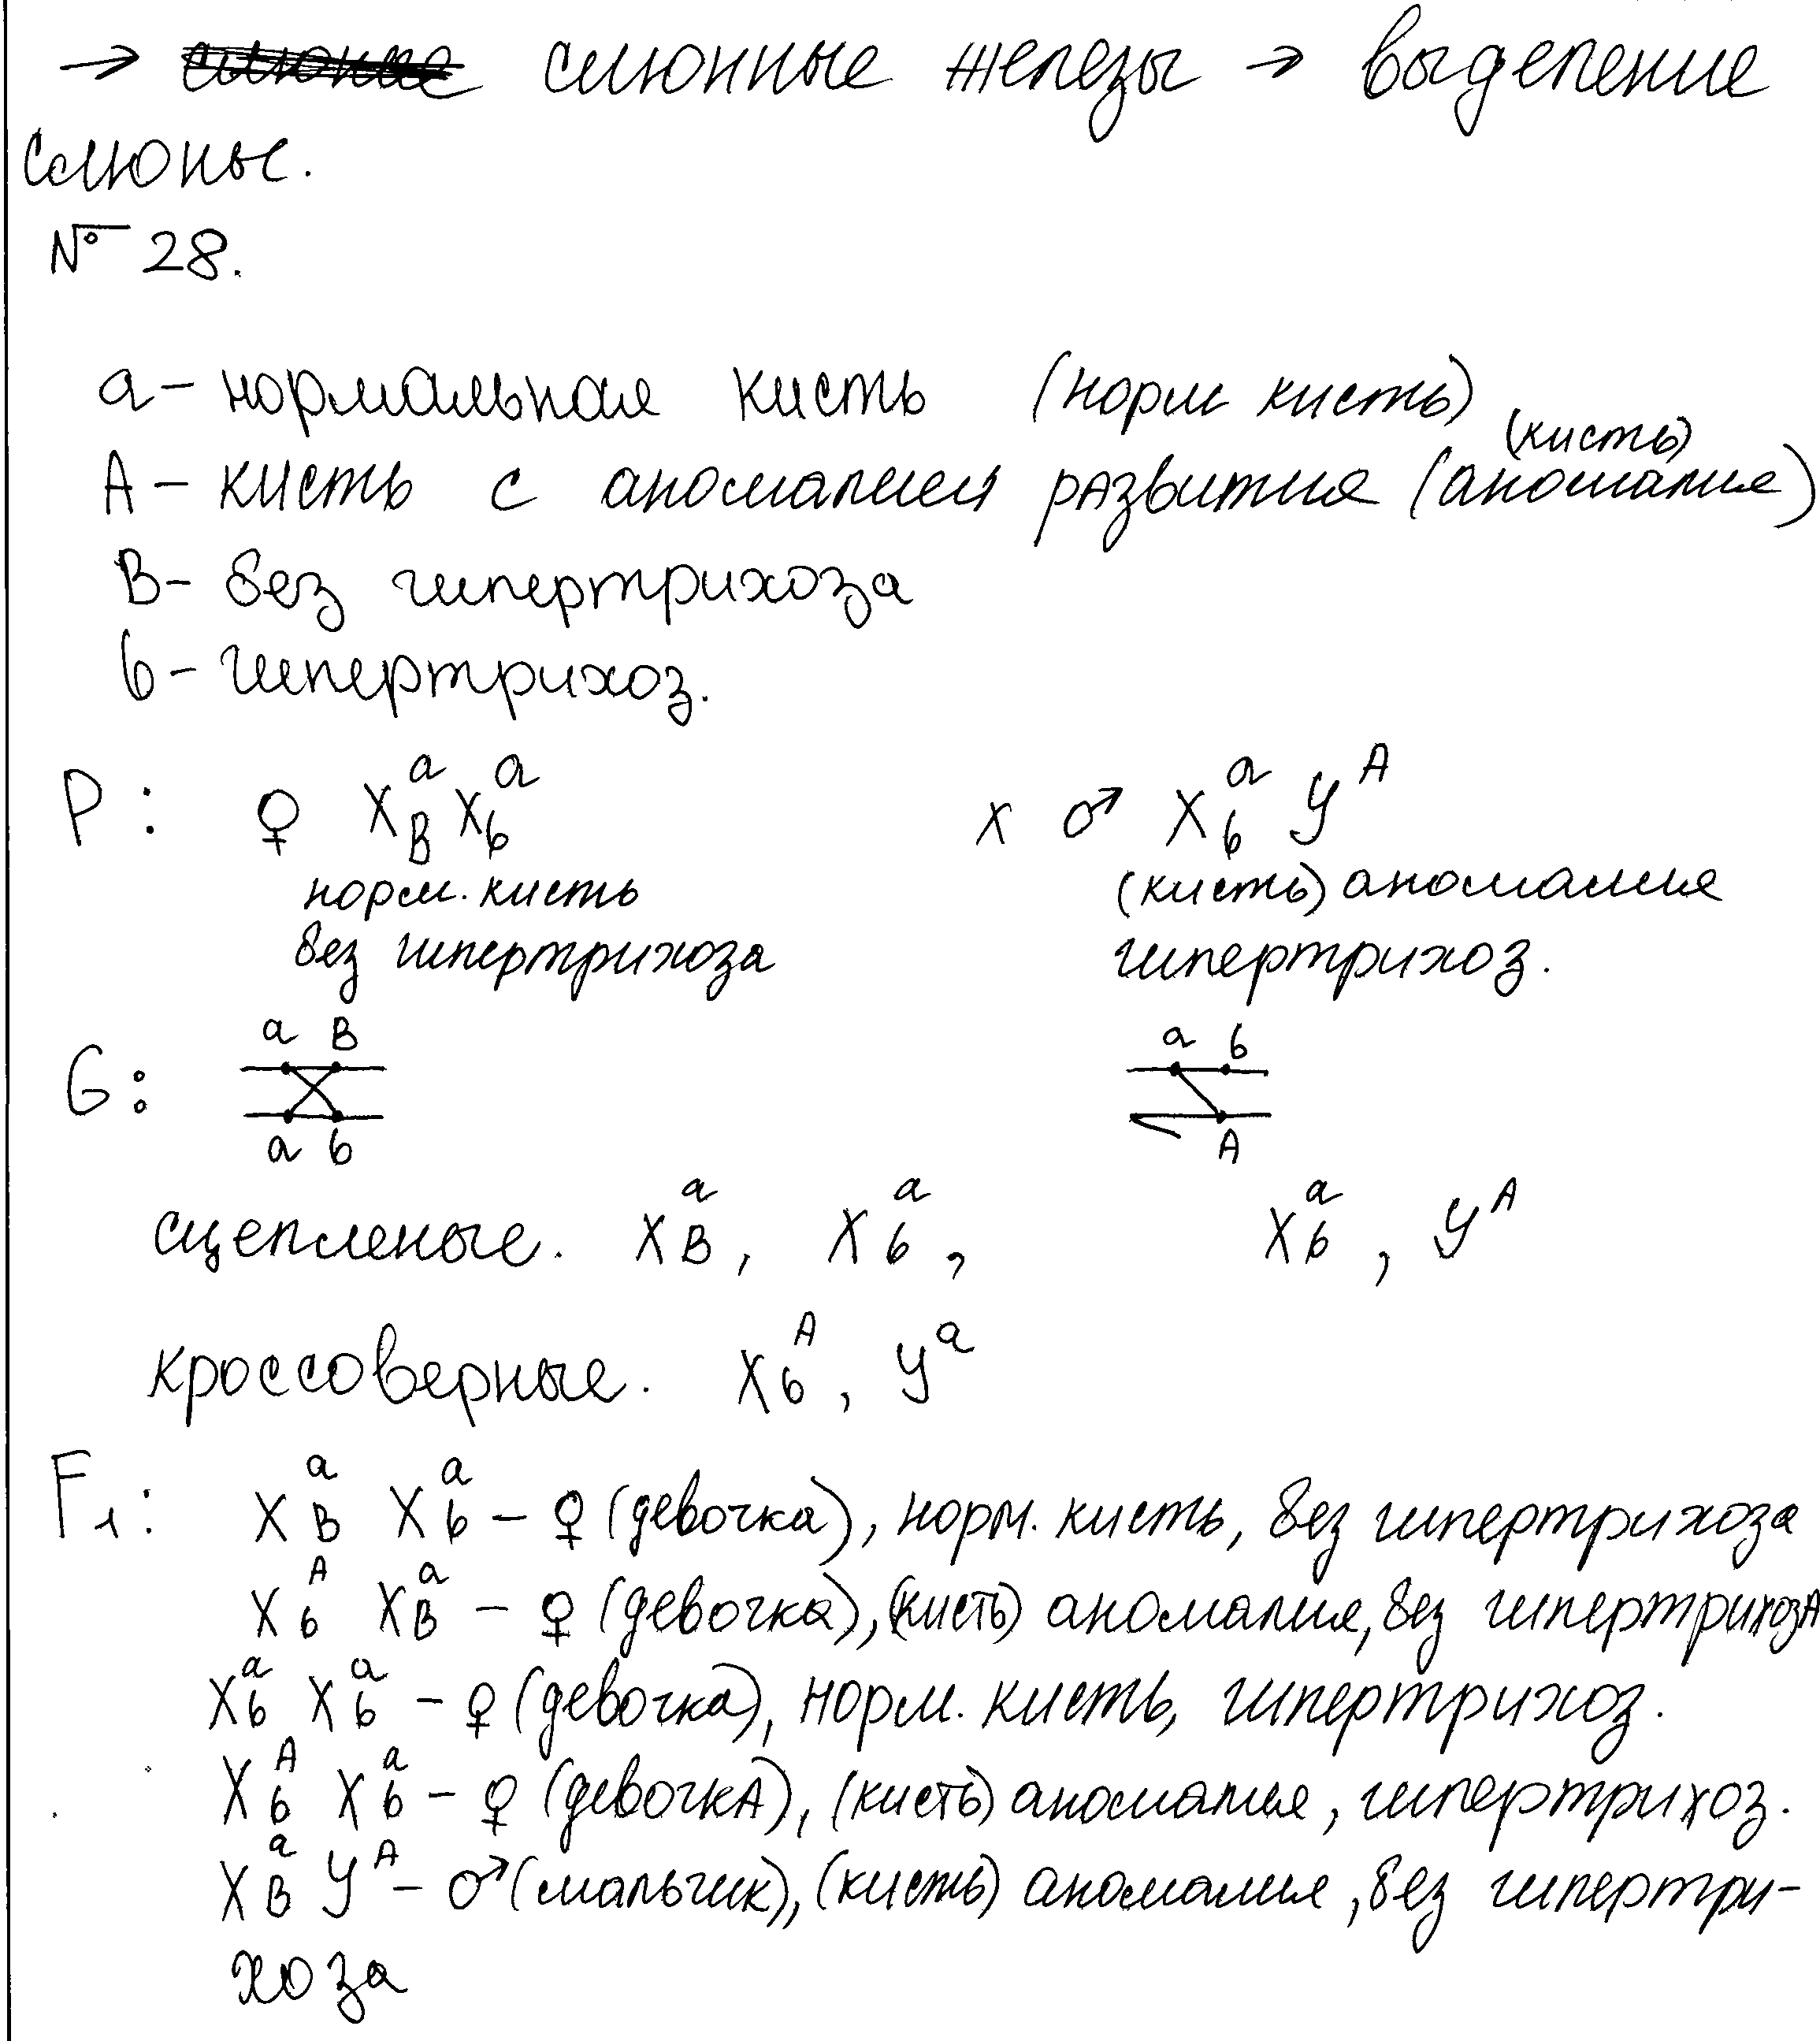 → слюнные железы → выделение
слюны.
№ 28.
a – нормальная кисть (норм кисть)
(кисть)
A – кисть с аномалией развития (аномалия)
B – без гипертрихоза
b – гипертрихоз.
P: ♀ X^a_B X^a_b x ♂ X^a_b Y^A
норм. кисть (кисть) аномалия
без гипертрихоза гипертрихоз.
a B a b
G:
a b A
сцепленые. X^a_B, X^a_b, X^a_b, Y^A
кроссоверные. X^A_b, Y^a
F1: X^a_B X^a_b – ♀ (девочка), норм. кисть, без гипертрихоза
X^A_b X^a_B – ♀ (девочка), (кисть) аномалия, без гипертрихозА
X^a_b X^a_b – ♀ (девочка), норм. кисть, гипертрихоз.
X^A_b X^a_b – ♀ (девочкА), (кисть) аномалия, гипертрихоз.
X^a_B Y^A – ♂ (мальчик), (кисть) аномалия, без гипертри-
хоза